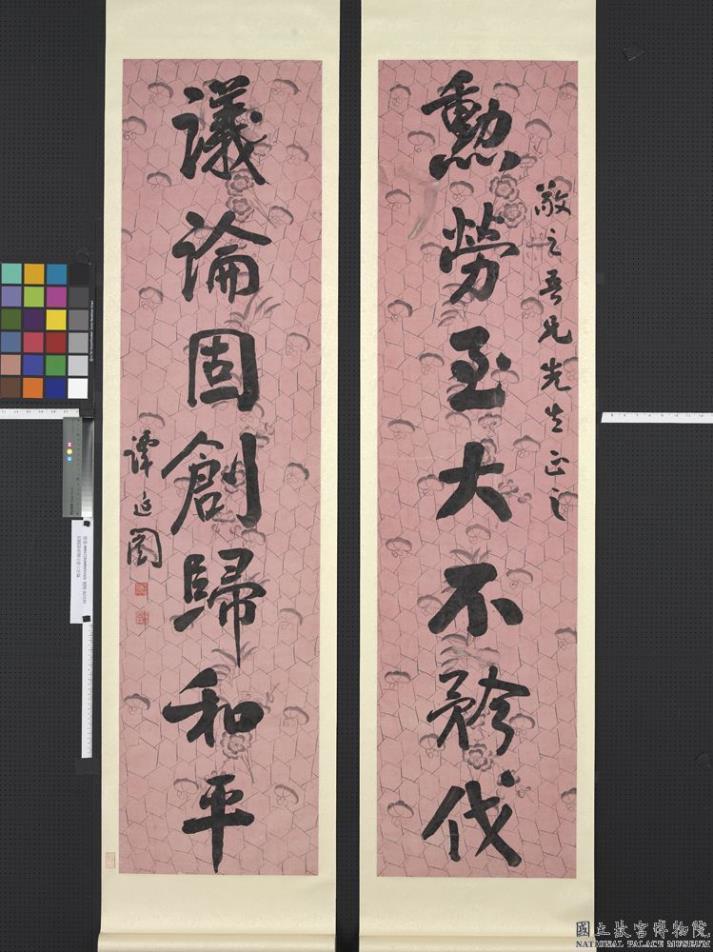 敬之吾兄先生正之
勲勞至大不矜伐
議論固創歸和平
譚延闓
國立故宮博物院
NATIONAL PALACE MUSEUM